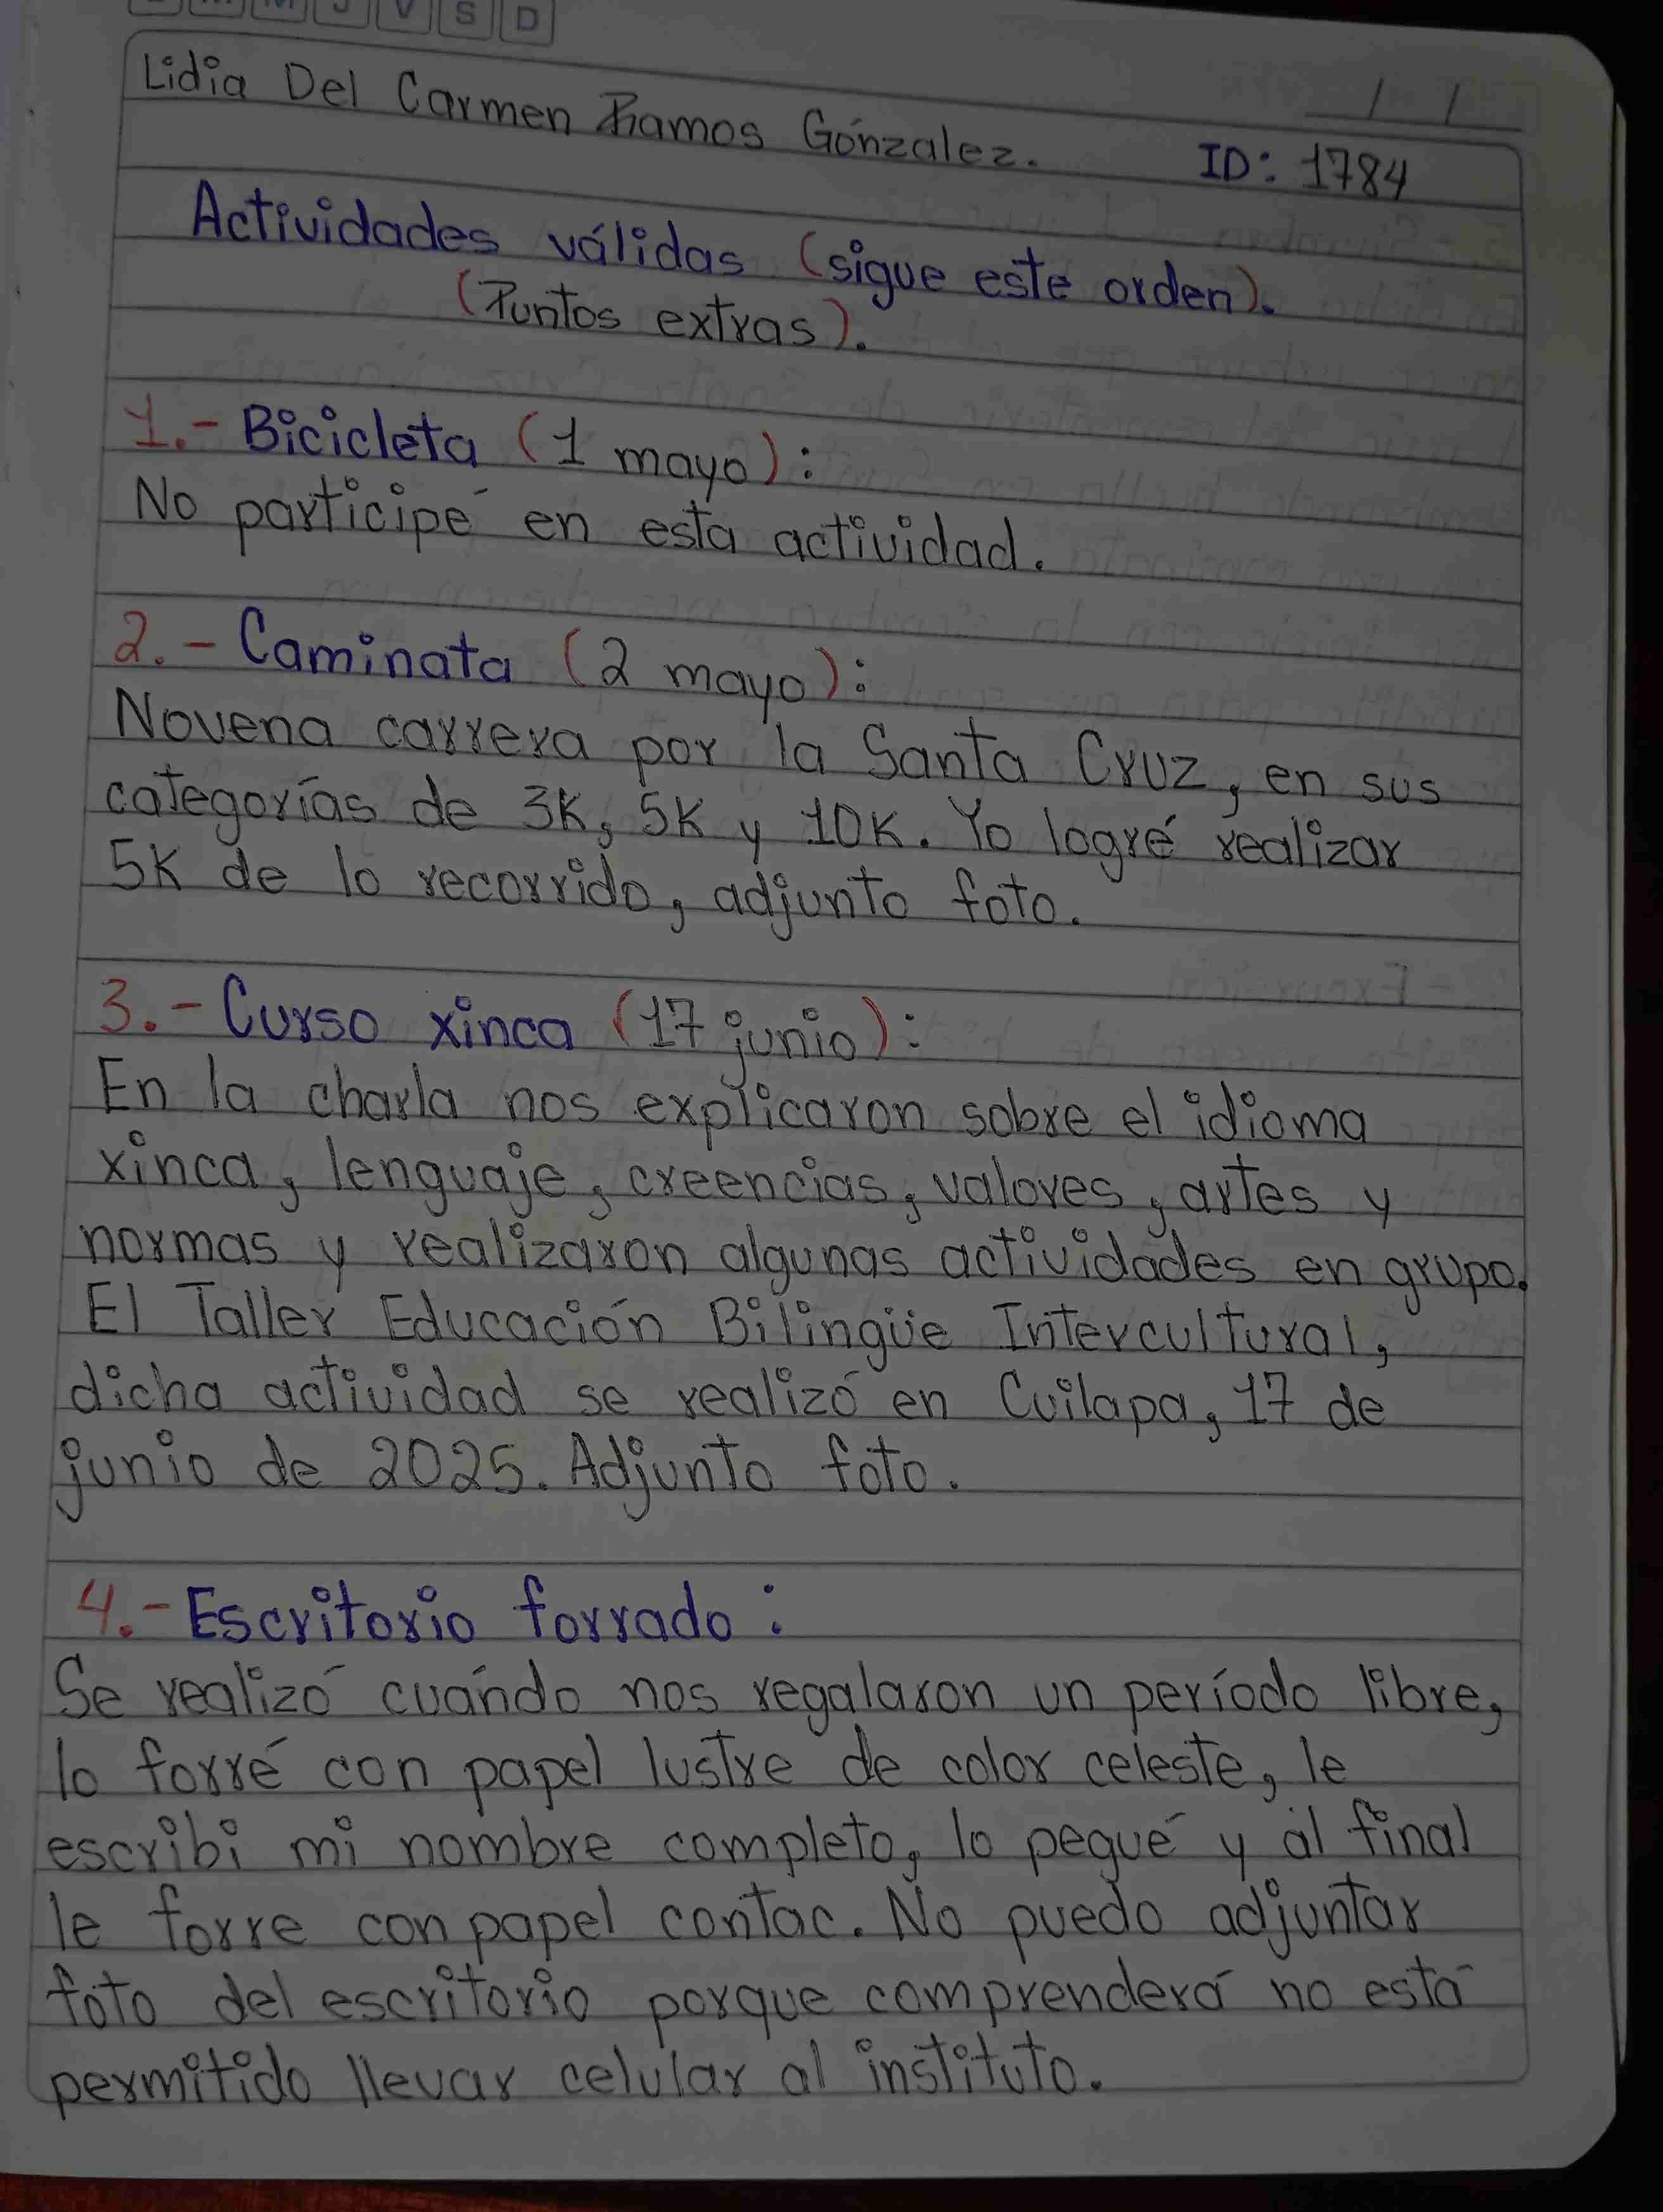 J V S D
Lidia Del Carmen Ramos Gónzalez.
ID: 1784
Actividades válidas (sigue este orden).
(Puntos extras).
1.- Bicicleta (1 mayo):
No participé en esta actividad.
2.- Caminata (2 mayo):
Novena carrera por la Santa Cruz, en sus
categorías de 3K, 5K y 10K. Yo logré realizar
5K de lo recorrido, adjunto foto.
3.- Curso xinca (17 junio):
En la charla nos explicaron sobre el idioma
xinca, lenguaje, creencias, valores, artes y
normas y realizarón algunas actividades en grupo.
El Taller Educación Bilingüe Intercultural,
dicha actividad se realizó en Cuilapa, 17 de
junio de 2025. Adjunto foto.
4.- Escritorio forrado:
Se realizó cuándo nos regalaron un período libre,
lo forré con papel lustre de color celeste, le
escribi mi nombre completo, lo pegué y al final
le forre con papel contac. No puedo adjuntar
foto del escritorio porque comprenderá no está
permitido llevar celular al instituto.